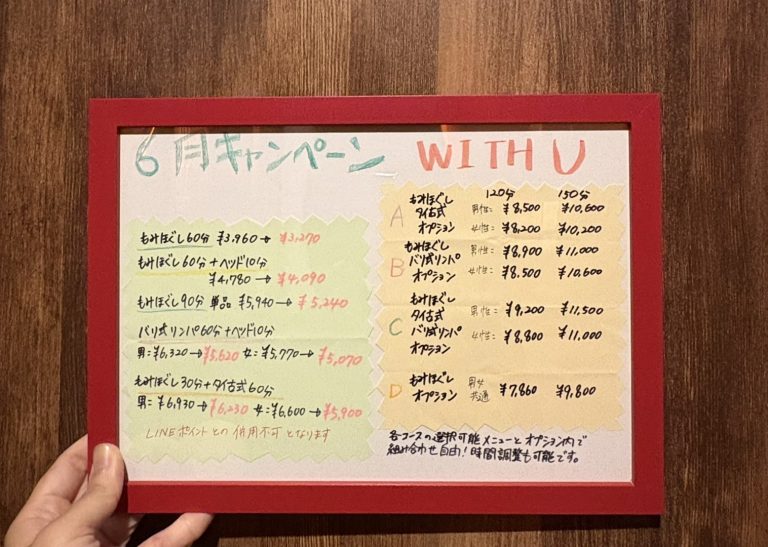 6月キャンペーン WITH U
もみほぐし60分 ¥3,960→¥3,270
もみほぐし60分+ヘッド10分
¥4,780→¥4,090
もみほぐし90分 単品 ¥5,940→¥5,240
バリ式リンパ60分+ヘッド10分
男=¥6,320→¥5,620 女=¥5,770→¥5,070
もみほぐし30分+タイ古式60分
男=¥6,930→¥6,230 女=¥6,600→¥5,900
LINEポイントとの併用不可となります
120分 150分
A
もみほぐし
タイ古式 男性= ¥8,500 ¥10,600
オプション 女性= ¥8,200 ¥10,200
B
もみほぐし 男性= ¥8,900 ¥11,000
バリ式リンパ
オプション 女性= ¥8,500 ¥10,600
C
もみほぐし
タイ古式 男性= ¥9,200 ¥11,500
バリ式リンパ 女性= ¥8,800 ¥11,000
オプション
D
もみほぐし 男女
オプション 共通 ¥7,860 ¥9,800
各コースの選択可能メニューとオプション内で
組み合わせ自由!時間調整も可能です。